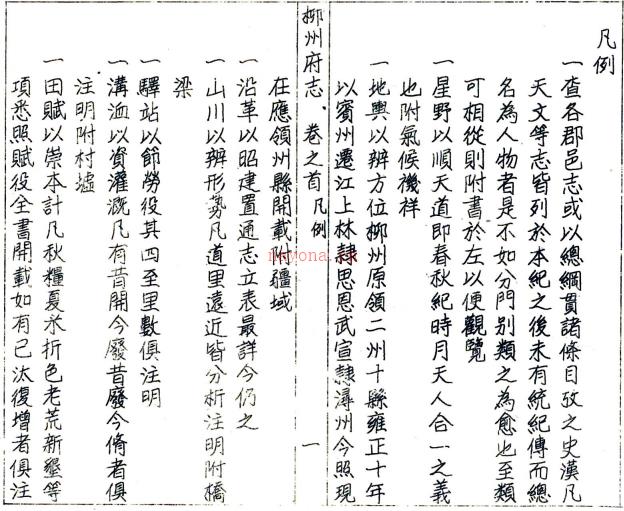 凡例
一查各郡邑志或以總綱貫諸條目攷之史漢凡
天文等志皆列於本紀之後未有統紀傳而總
名為人物者是不如分門別類之為愈也至類
可相從則附書於左以便觀覽
一星野以順天道即春秋紀時月天人合一之義
也附氣候禨祥
一地輿以辨方位柳州原領二州十縣雍正十年
以賓州遷江上林隷思恩武宣隷潯州今照現
柳州府志 卷之首 凡例 一
在應領州縣開載附疆域
一沿革以昭建置通志立表最詳今仍之
一山川以辨形勢凡道里遠近皆分析注明附橋
梁
一驛站以節勞役其四至里數俱注明
一溝洫以資灌溉凡有昔開今廢昔廢今脩者俱
注明附村墟
一田賦以崇本計凡秋糧夏米折色老荒新墾等
項悉照賦役全書開載如有已汰復增者俱注